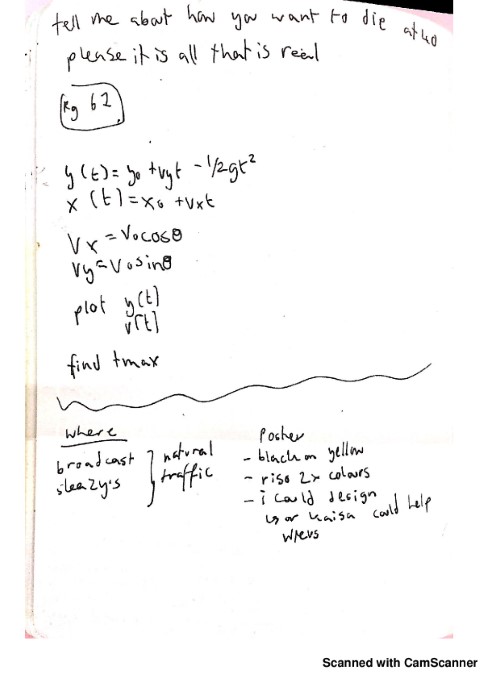 tell me about how you want to die at 40
please it is all that is real
pg 62
y(t) = y₀ + vyt - 1/2gt²
x (t) = x₀ + vxt
Vx = V₀cosθ
Vy = V₀sinθ
plot y(t)
v(t)
find tmax
where
broadcast
sleazy's
natural
traffic
Poster
- black on yellow
- riso 2x colours
- i could design
or kaisa could help